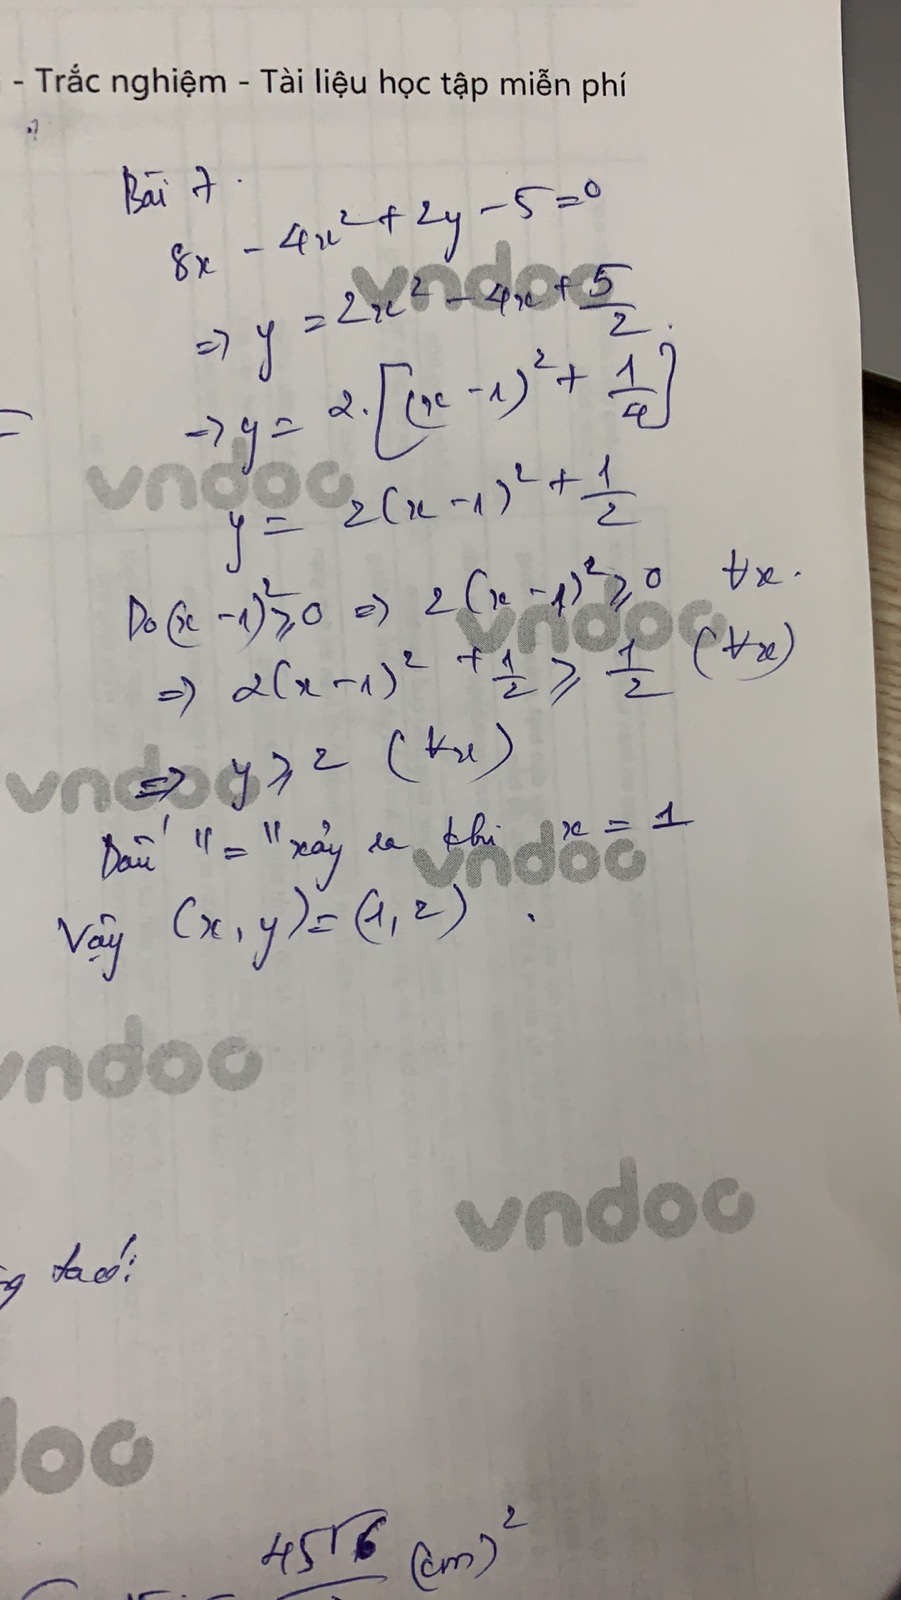 - Trắc nghiệm - Tài liệu học tập miễn phí
Bài 7.
8x - 4x² + 2y - 5 = 0
=> y = 2x² - 4x + 5/2.
=> y = 2.[(x - 1)² + 1/4]
y = 2(x - 1)² + 1/2
Do (x - 1)² ≥ 0 => 2(x - 1)² ≥ 0 ∀x.
=> 2(x - 1)² + 1/2 ≥ 1/2 (∀x)
=> y ≥ 2 (∀x)
Dấu "=" xảy ra khi x = 1
Vậy (x, y) = (1, 2).
vndoc
vndoc
vndoc
vndoc
vndoc
vndoc
vndoc
ta có:
doc
45√6 (cm)²